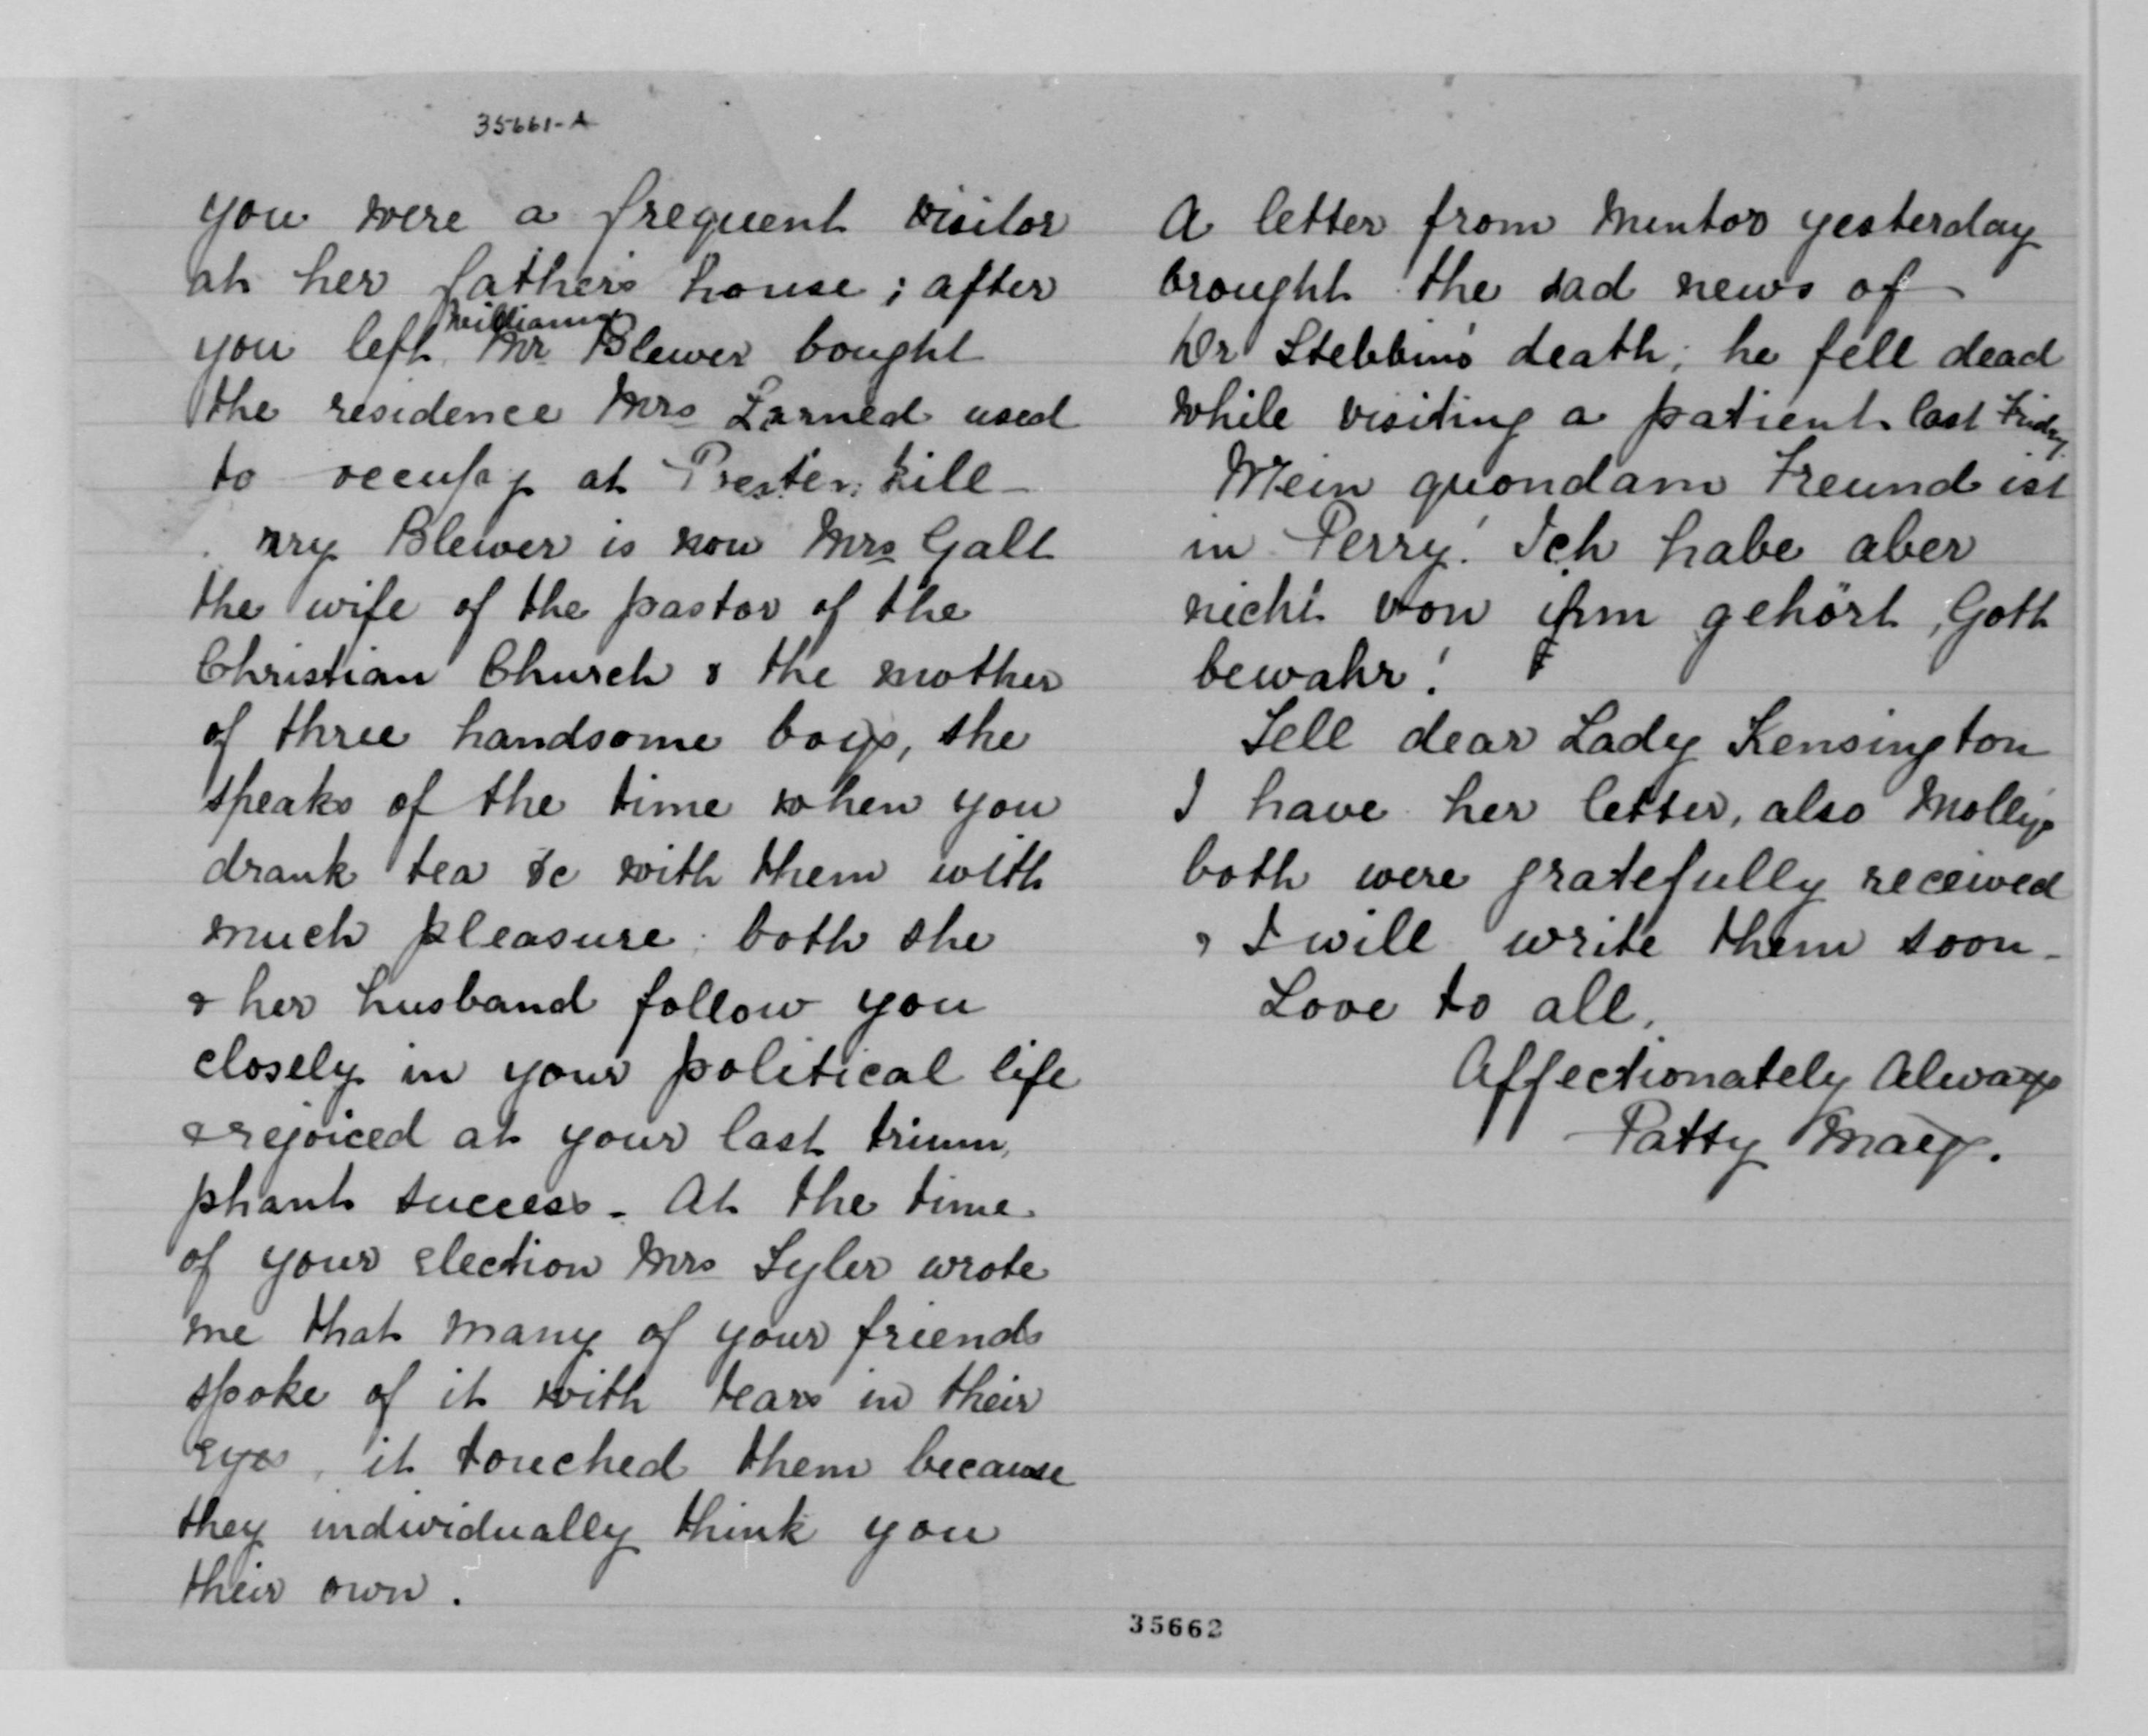 35661-A
you were a frequent visitor
at her fathers house; after
Williams
you left Mr Blewer bought
the residence Mrs Larned used
to occupy at Presten, kill
Blewer is now Mrs Galt
the wife of the pastor of the
Christian Church & the mother
of three handsome boys, she
speaks of the time when you
drank tea &c with them with
much pleasure. both she
& her husband follow you
closely in your political life
& rejoiced at your last trium,
phant success - At the time
of your election Mrs Tyler wrote
me that many of your friends
spoke of it with tears in their
eyes, it touched them because
they individually think you
their own.
A letter from Mentor yesterday
brought the sad news of
Dr Stebbin's death; he fell dead
while visiting a patient last Friday
Mein quondam Freund ist
in Perry! Ich habe aber
nicht von ihm gehört, Gott
bewahr!
Tell dear Lady Kensington
I have her letter, also Molly's
both were gratefully received
& I will write them soon -
Love to all,
Affectionately Always
Patty Mary.
35662